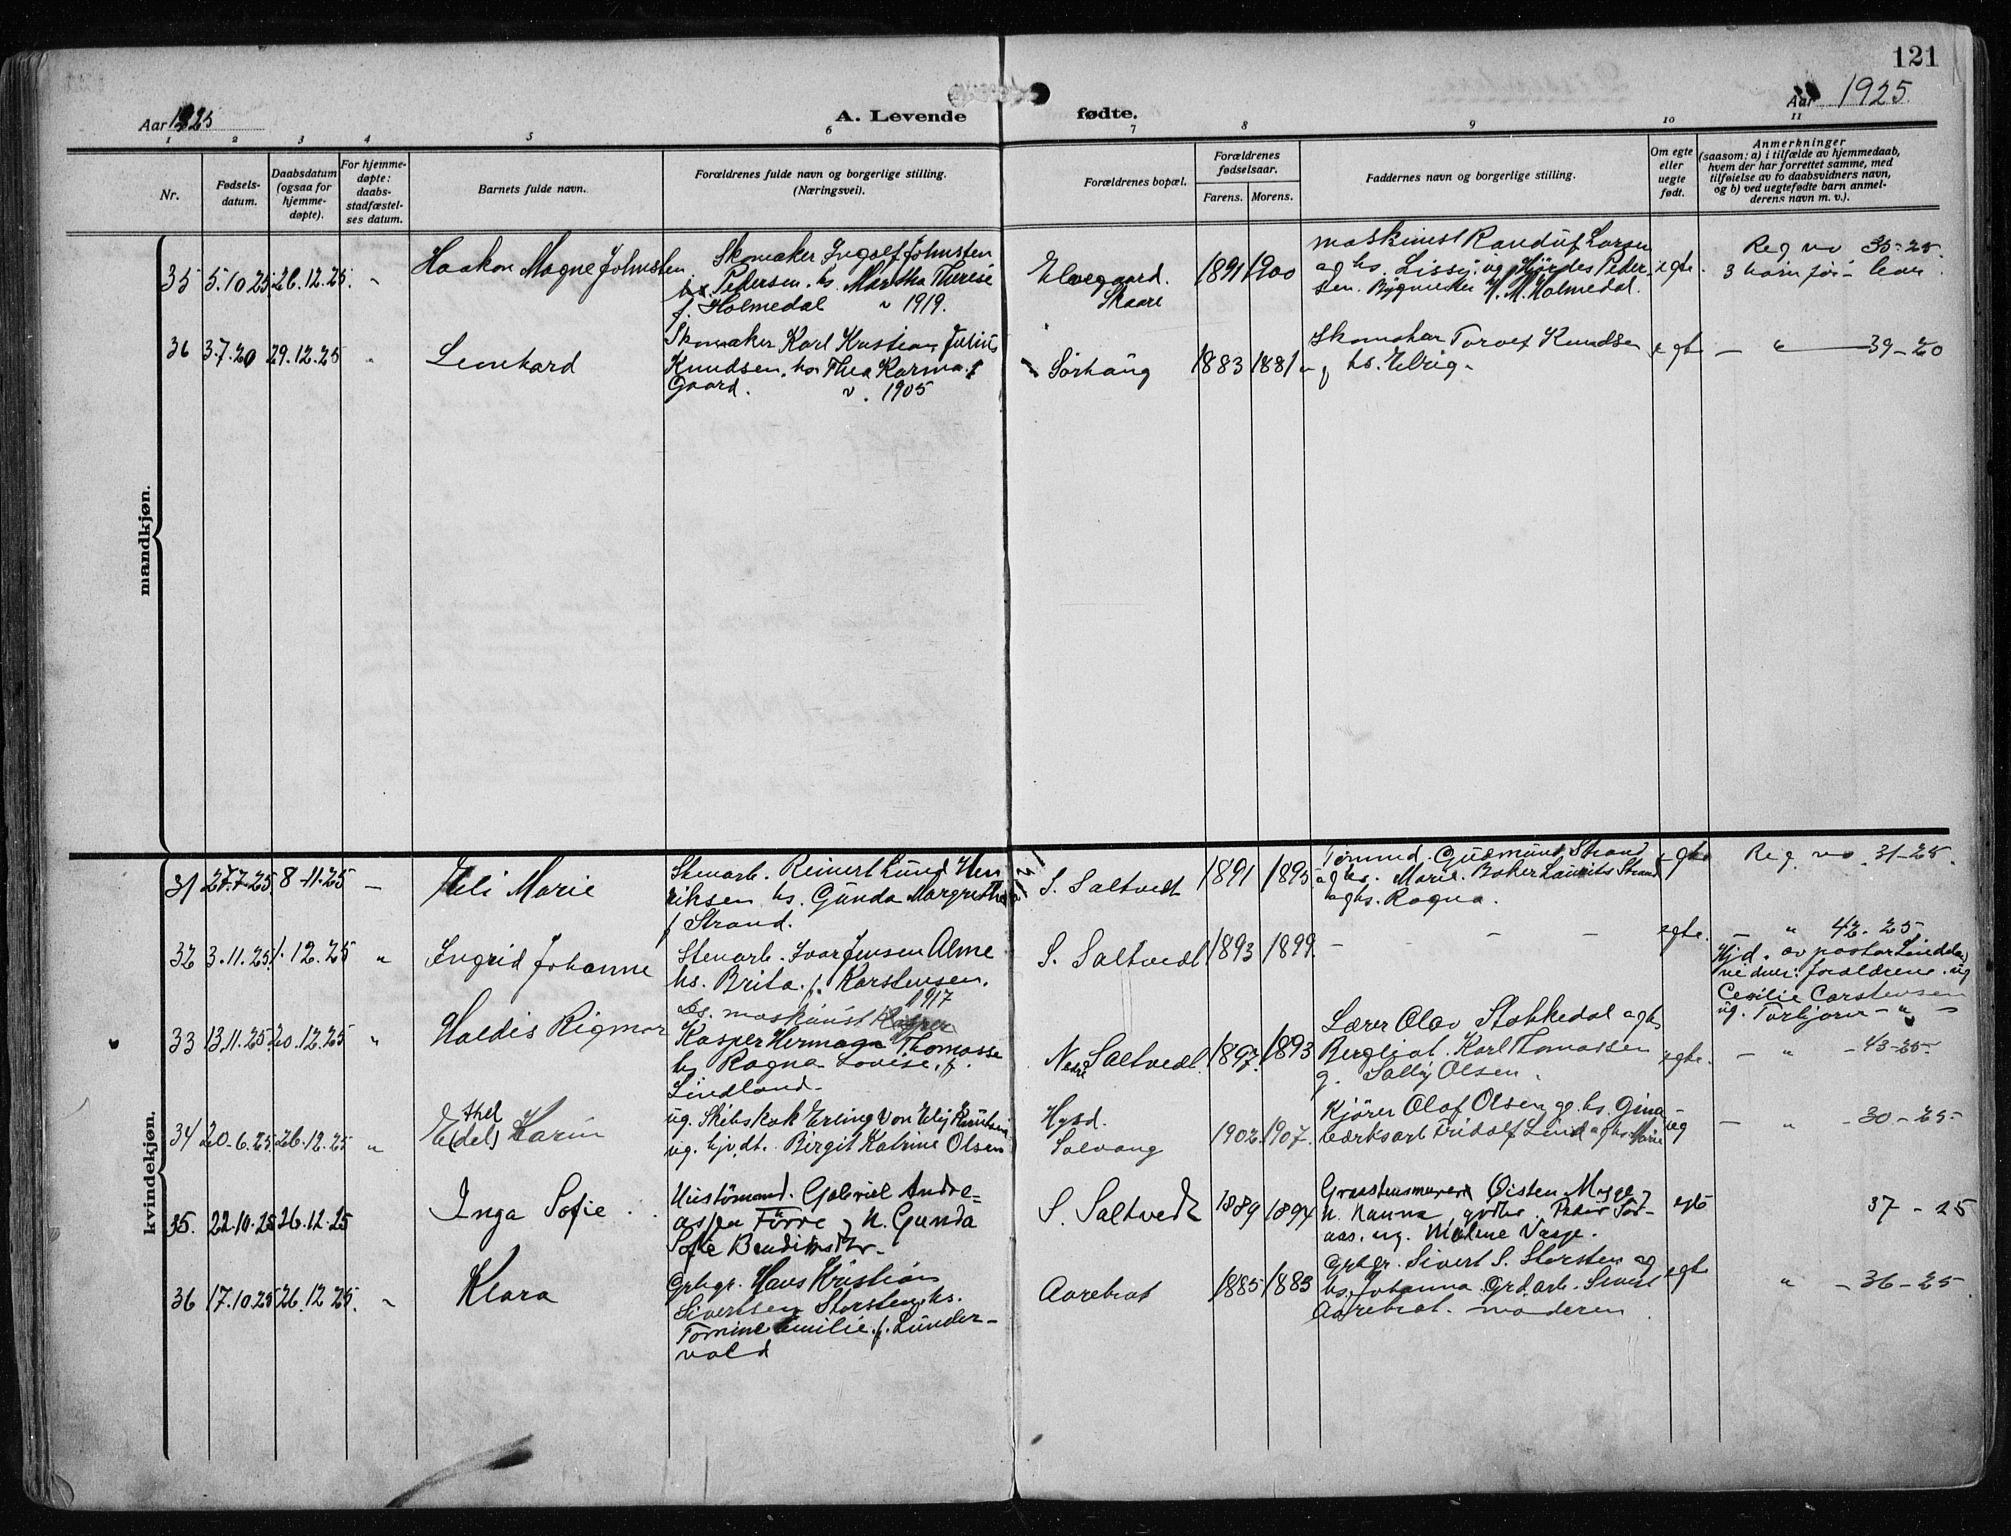 121
Aar 1925
A. Levende fødte.
Aar 1925.
1 2 3 4 5 6 7 8 9 10 11
Nr.
Fødsels-
datum.
Daabsdatum
(ogsaa for
hjemme-
døpte).
For hjemme-
døpte:
daabs-
stadfæstel-
ses datum.
Barnets fulde navn.
Forældrenes fulde navn og borgerlige stilling.
(Næringsvei).
Forældrenes bopæl.
Forældrenes
fødselsaar.
Farens. Morens.
Faddernes navn og borgerlige stilling.
Om egte
eller
uegte
født.
Anmerkninger
(saasom: a) i tilfælde av hjemmedaab,
hvem der har forrettet samme, med
tilføielse av to daabsvidners navn,
og b) ved uegtefødte barn anmel-
derens navn m. v.).
mandkjøn.
35 5.10.25 26.12.25 „
Haakon Magne Johnsten
Skomaker Ingolf Johnsten
Pedersen. hs. Martha Therese
f. Holmedal v 1919.
Elvegaard.
Skaare
1891 1900
maskinist Randulf Larsen
og hs. Lissy. ug Hjørdes Peder-
sen. Bygmester H. M. Holmedal.
egte.
Reg no 35-25.
3 barn før - lever.
36 3.7.20 29.12.25 „
Lenhard
Skomaker Karl Kristian Julius
Knudsen. hs Thea Karma f
Gaard. v. 1905
Sørhaug
1883 1881
Skomaker Torolf Knudsen
hs. Elvig.
egte
— „ — 39-20
kvindekjøn.
31 27.7.25 8-11.25 —
Eli Marie
Stenarb. Reinert Lund Hen
riksen hs. Gunda Margrethe
f Strand.
S. Saltvedt
1891 1895
Tømmd. Gudmund Strand
og hs. Marie. Baker Laurits Strand
og hs. Ragna.
egte
Reg. no. 31-25.
32 3.11.25 1.12.25 „
Ingrid Johanne
Stenarb. Ivar Jensen Alme
hs. Brita. f. Karstensen.
1917
S. Saltvedt
1893 1899.
— - - -
egte.
— „ 42.25
Hjd. av pastor Lindeland
vidner: forældrene. ug
Cecilie Carstensen
ug. Torbjørn - „ -
33 13.11.25 20.12.25 „
Haldis Rigmor
Ds. maskinist
Kasper Hermann Thomasse
hs Ragna Lovise, f.
Lindland.
Nedre Saltvedt.
1897. 1893
Lærer Olav Stokkedal og hs
Bergliot. Karl Thomassen
g. Sally Olsen.
egte.
— „ - 43-25.
34 20-6.25 26.12.25 „
Ethel
E(del) Karin
ug. Skibskok Erling Von
ug. hjv. dt. Birgit Katrine Olsen
Hgsd.
Solvang
1902. 1907.
Kjører Olaf Olsen og hs. Gina
Værksarb Fridolf Lind og hs. Marie
ug
— „ - 30-25
35. 22.10.25 26.12.25
Inga Sofie
Hustømand. Gabriel Andre-
assen Førre H. Gunda
Sofie Bendiksdtr.
S. Saltvedt
1889 1894
Graastensmurer Øisten
H. Nanna
aas. ug. Malene Vasje.
egte
37 - 25
36 17.10.25 26.12.25. „
Klara
Grbgr. Hans Kristian
Sivertsen Storsten hs.
Tomine Emilie. f. Lunder-
vold
Aarebrot
1885 1883
Grbgr. Sivert S. Storsten og
hs. Johanna. Grd.arb. Sivert
Aarebrot. moderen
egte
„ - 36-25